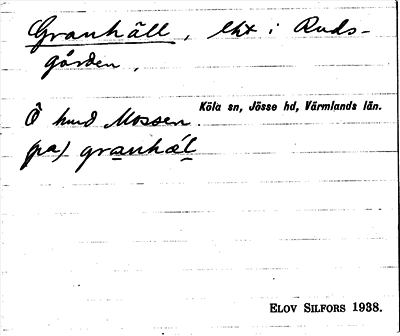 Granhäll, lht i Ruds-
gården,
Köla sn, Jösse hd, Värmlands län.
Ö hmd Mossen.
pa) granhäl
ELOV SILFORS 1938.